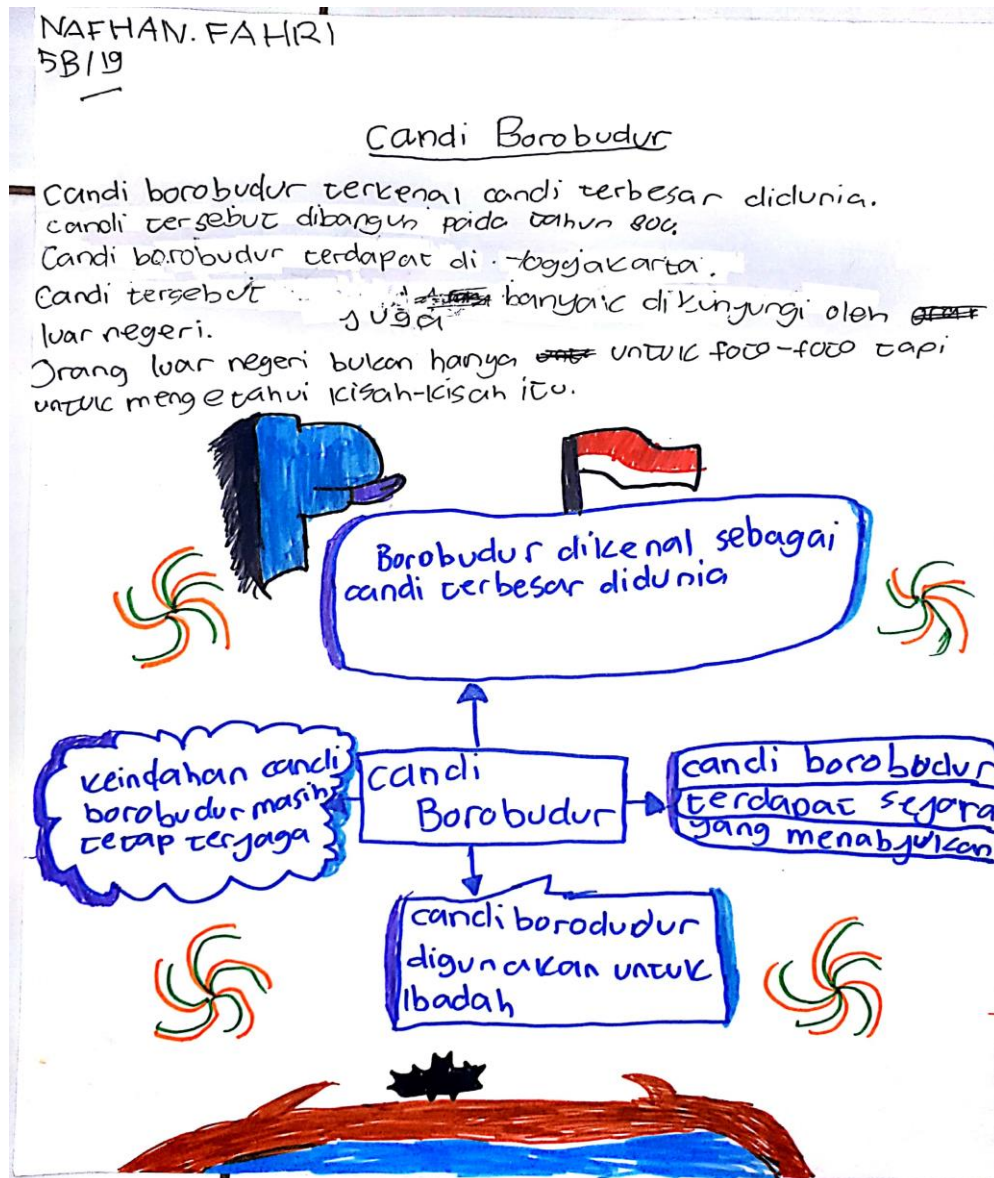 NAFHAN. FAHRI
5B/19
Candi Borobudur
Candi borobudur terkenal candi terbesar didunia.
candi tersebut dibangun pada tahun 800.
Candi borobudur terdapat di Yogyakarta.
Candi tersebut juga banyak dikunyungi oleh
luar negeri.
Orang luar negeri bukan hanya untuk foto-foto tapi
untuk mengetahui kisah-kisah itu.
Borobudur dikenal sebagai
candi terbesar didunia
keindahan candi
borobudur masih
tetap terjaga
candi
Borobudur
candi borobudur
terdapat sejara
yang menabjukan
candi borodudur
digunakan untuk
Ibadah